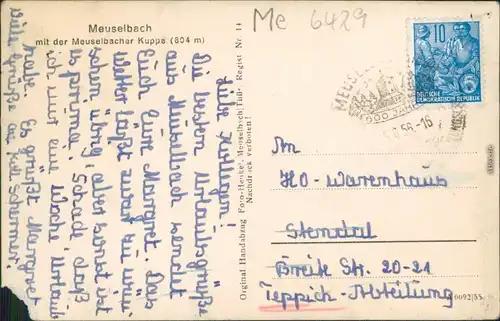 Meuselbach
mit der Meuselbacher Kuppe (804 m)
Me 6429
Liebe Kollegen!
Die besten Urlaubsgrüße
aus Meuselbach sendet
Euch Eure Margret. Das
Wetter läßt zwar zu wün-
schen übrig, aber sonst ist
es prima. Schade, daß
ich nur eine Woche Urlaub
habe. Es grüßt Margret
Viele Grüße an Koll. Schermer
Orginal Handabzug Foto-Heute, Meuselbach/Thür. Regist Nr. 14
Nachdruck verboten!
10
DEUTSCHE
DEMOKRATISCHE REPUBLIK
6
MEUSEL
1000 JAHR
56-16
An
HO-Warenhaus
Stendal
Breite Str. 20-21
Teppich-Abteilung
0092/55